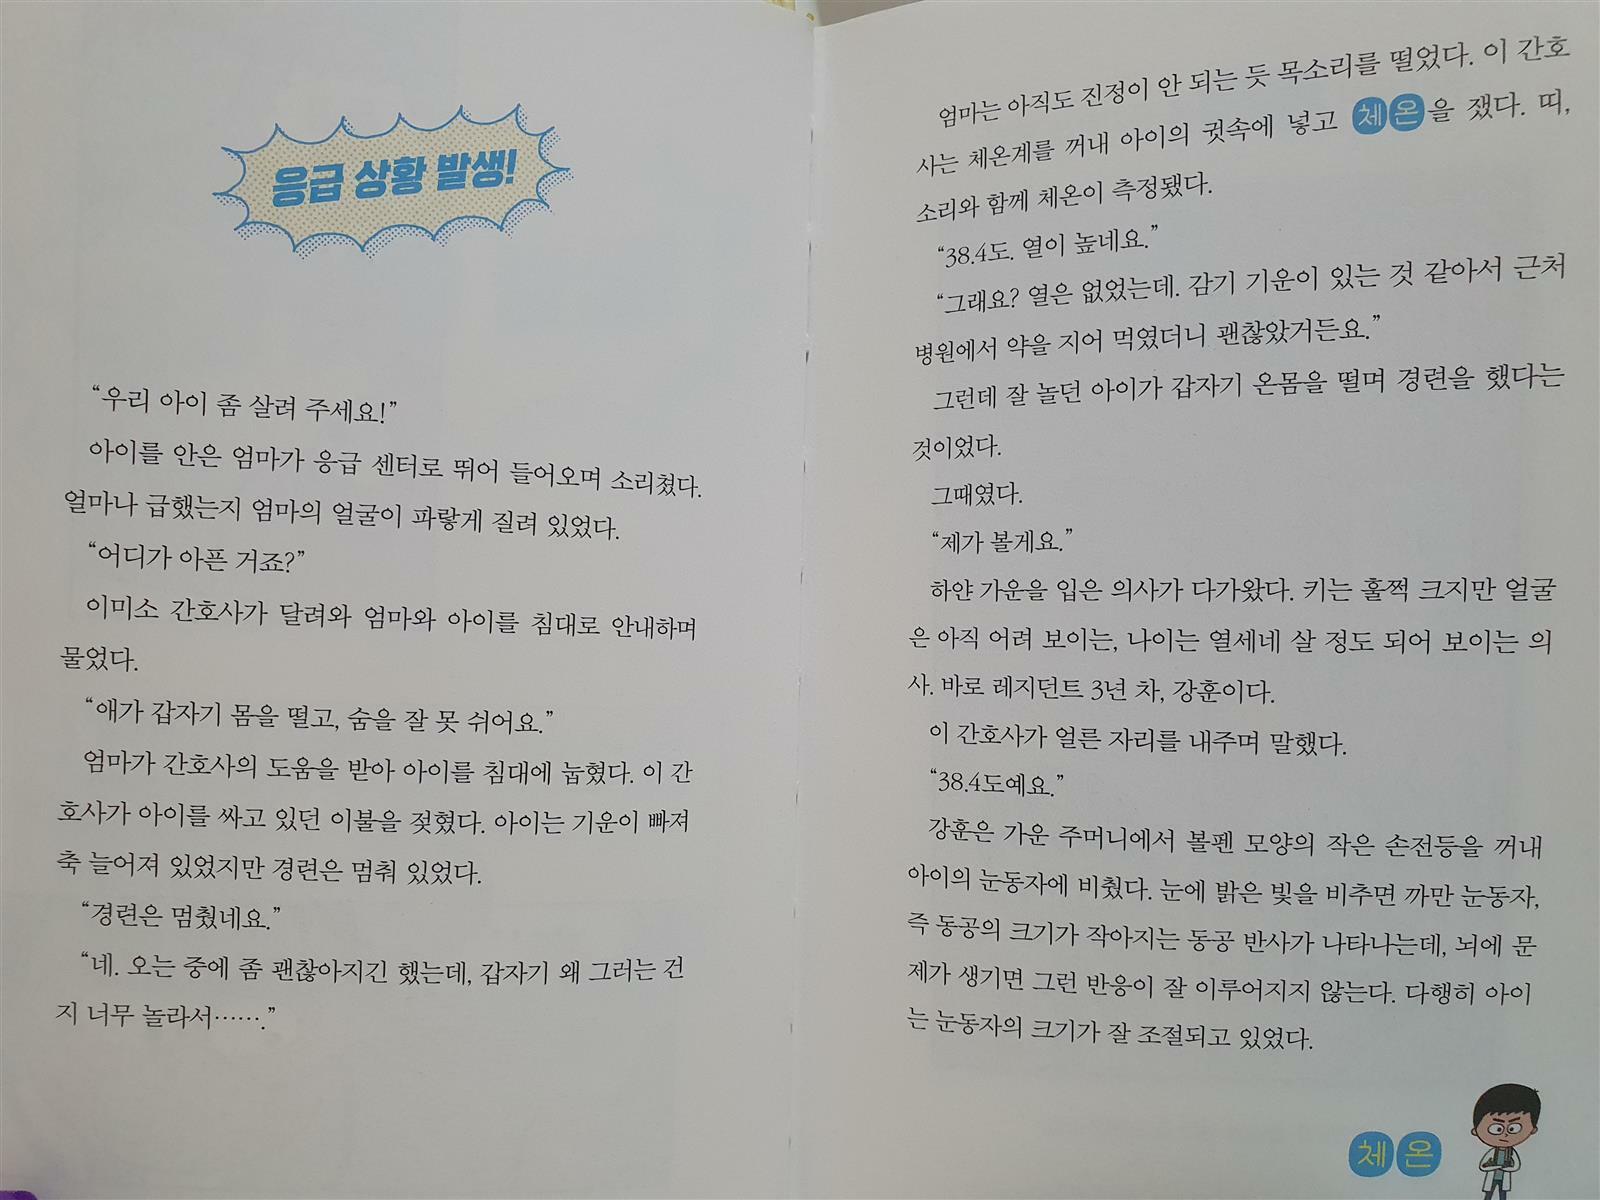 응급 상황 발생!
“우리 아이 좀 살려 주세요!”
아이를 안은 엄마가 응급 센터로 뛰어 들어오며 소리쳤다.
얼마나 급했는지 엄마의 얼굴이 파랗게 질려 있었다.
“어디가 아픈 거죠?”
이미소 간호사가 달려와 엄마와 아이를 침대로 안내하며
물었다.
“애가 갑자기 몸을 떨고, 숨을 잘 못 쉬어요.”
엄마가 간호사의 도움을 받아 아이를 침대에 눕혔다. 이 간
호사가 아이를 싸고 있던 이불을 젖혔다. 아이는 기운이 빠져
축 늘어져 있었지만 경련은 멈춰 있었다.
“경련은 멈췄네요.”
“네. 오는 중에 좀 괜찮아지긴 했는데, 갑자기 왜 그러는 건
지 너무 놀라서…….”
엄마는 아직도 진정이 안 되는 듯 목소리를 떨었다. 이 간호
사는 체온계를 꺼내 아이의 귓속에 넣고 체온을 쟀다. 띠,
소리와 함께 체온이 측정됐다.
“38.4도. 열이 높네요.”
“그래요? 열은 없었는데. 감기 기운이 있는 것 같아서 근처
병원에서 약을 지어 먹였더니 괜찮았거든요.”
그런데 잘 놀던 아이가 갑자기 온몸을 떨며 경련을 했다는
것이었다.
그때였다.
“제가 볼게요.”
하얀 가운을 입은 의사가 다가왔다. 키는 훌쩍 크지만 얼굴
은 아직 어려 보이는, 나이는 열세네 살 정도 되어 보이는 의
사. 바로 레지던트 3년 차, 강훈이다.
이 간호사가 얼른 자리를 내주며 말했다.
“38.4도예요.”
강훈은 가운 주머니에서 볼펜 모양의 작은 손전등을 꺼내
아이의 눈동자에 비췄다. 눈에 밝은 빛을 비추면 까만 눈동자,
즉 동공의 크기가 작아지는 동공 반사가 나타나는데, 뇌에 문
제가 생기면 그런 반응이 잘 이루어지지 않는다. 다행히 아이
는 눈동자의 크기가 잘 조절되고 있었다.
체온